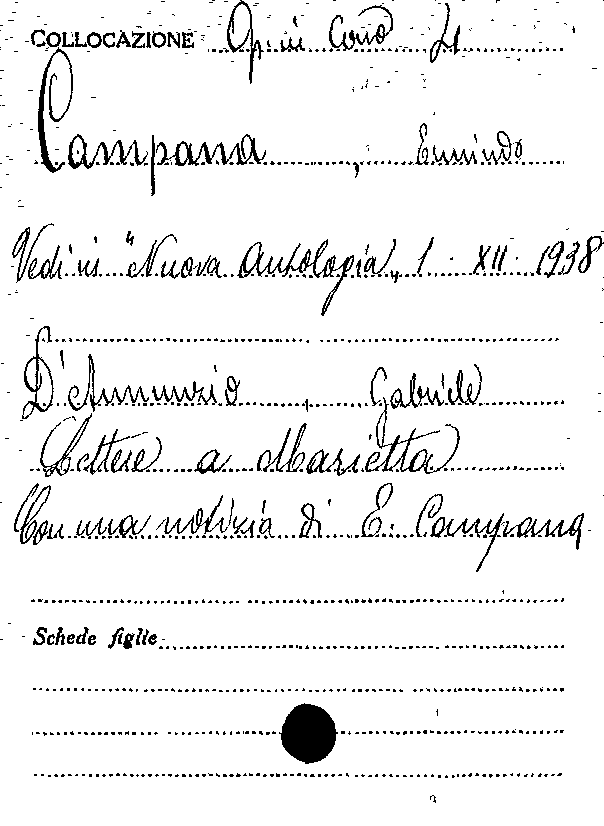 COLLOCAZIONE Op. in corso 21
Campana, Ermindo
Vedi in "Nuova Antologia", 1. XII. 1938
D'Annunzio, Gabriele
Lettere a Marietta
Con una notizia di E. Campana
Schede figlie